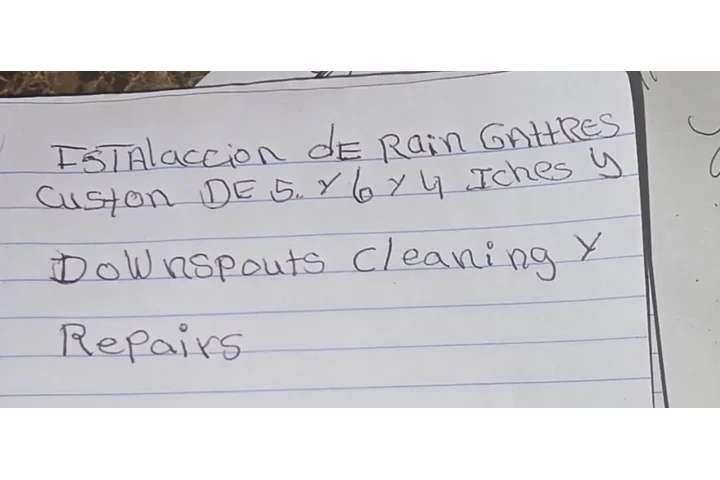 ISTAlaccion dE Rain GAttRES
Custon DE 5. Y 6 Y 4 Iches y
Downspouts cleaning Y
Repairs